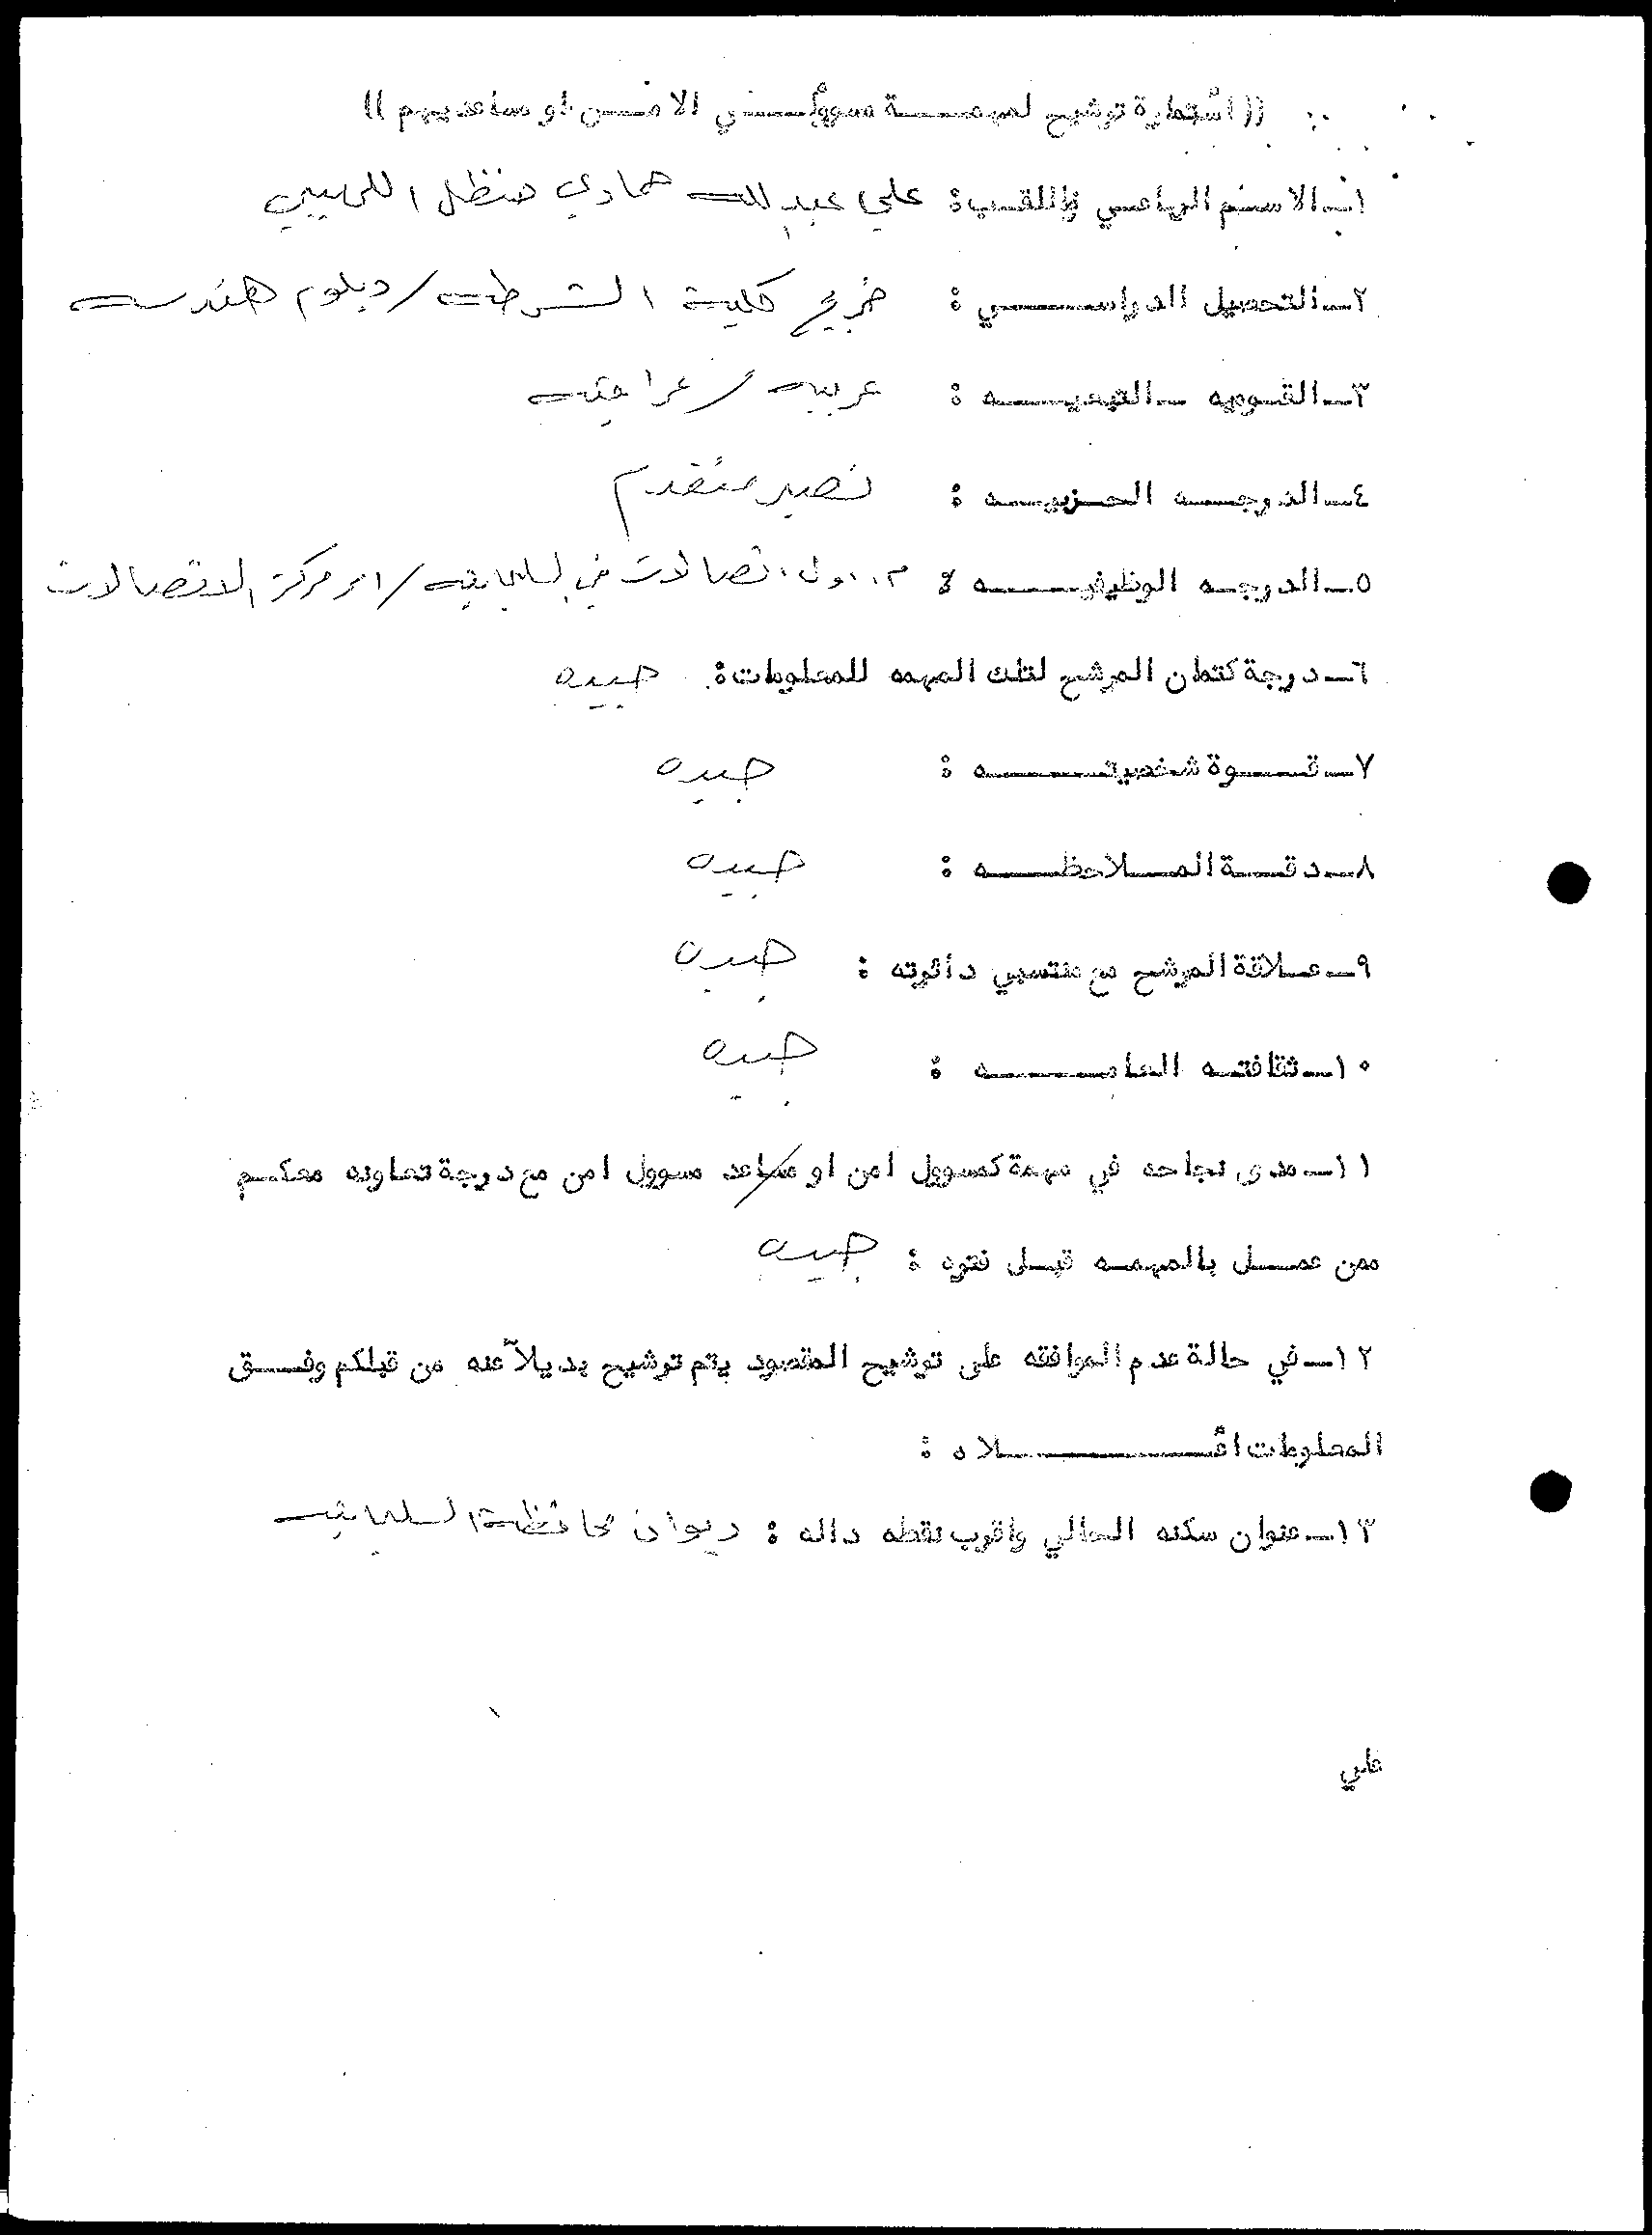 (( استمارة ترشيح لمهمة مسوؤلي الامن او مساعديهم ))
١ـ الاسم الرباعي واللقب : علي عبدالله حمادي حنظل اللهيبي
٢ـ التحصيل الدراسي : خريج كلية الشرطه / دبلوم هندسه
٣ـ القوميه ـ : عربيه / عراقيه
٤ـ الدرجه الحزبيه : نصير متقدم
٥ـ الدرجه الوظيفيه : م. اول اتصالات في السليمانيه / امر مركز الاتصالات
٦ـ درجة كتمان المرشح لتلك المهمه للمعلومات : جيده
٧ـ قوة شخصيته : جيده
٨ـ دقة الملاحظه : جيده
٩ـ علاقة المرشح مع منتسبي دائرته : جيده
١٠ـ ثقافته العامه : جيده
١١ـ مدى نجاحه في مهمة كمسوول امن او مساعد مسوول امن مع درجة تعاونه معكم
ممن عمل بالمهمه قبل فتره : جيده
١٢ـ في حالة عدم الموافقه على ترشيح المقصود يتم ترشيح بديلاً عنه من قبلكم وفق
المعلومات اعلاه :
١٣ـ عنوان سكنه الحالي واقرب نقطه داله : ديوان محافظة السليمانيه
علي